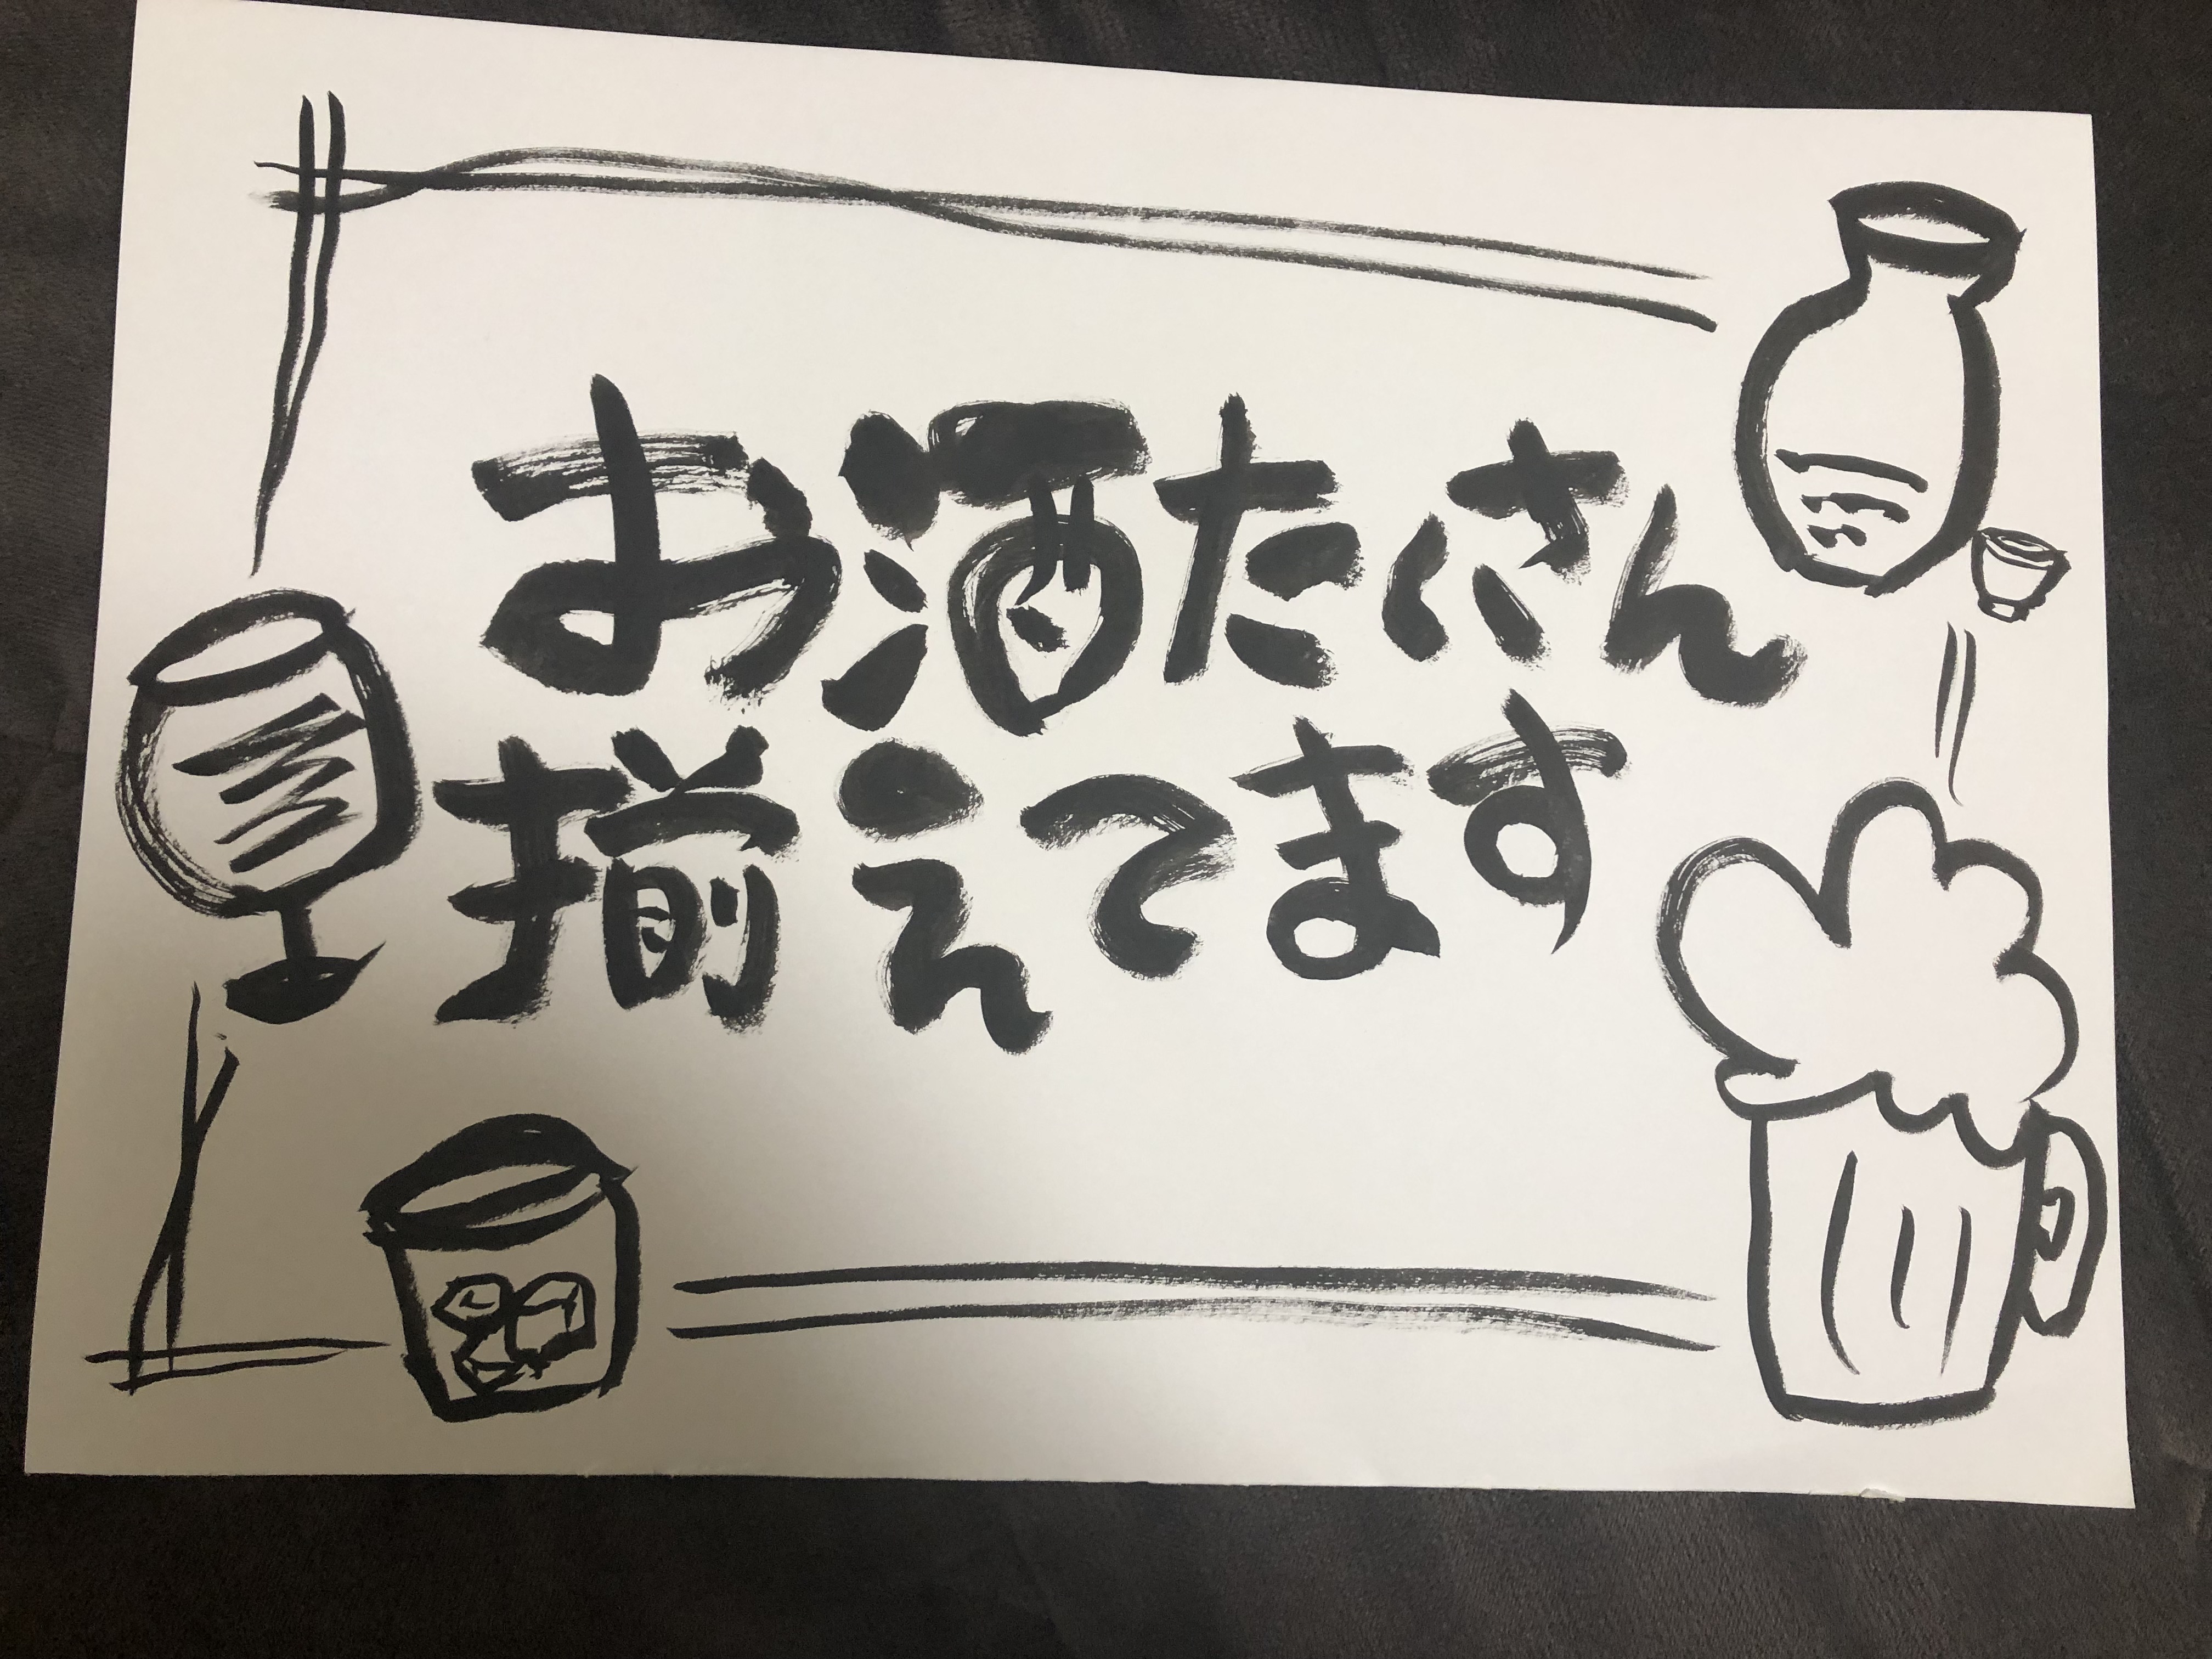 お酒たくさん
揃えてます